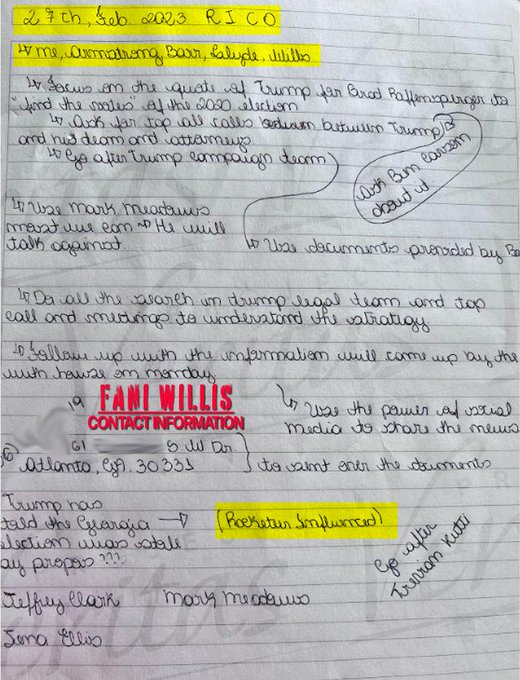 27th, Feb. 2023 R I C O
↳ me, Armstrong Barr, Wills
↳ Focus on the quote of Trump for Brad Raffensperger to
"find the votes" of the 2020 election
↳ Ask for top all calls between Trump
and his team and attorneys
↳ Go after Trump campaign team
Ask Ben
about it
↳ Use Mark Meadows
most we can → He will
talk against.
↳ Use documents provided by B
↳ Do all the search in trump legal team and top
call and meetings to understand the strategy
↳ Follow up with the information will come up by the
with house on monday
19 FANI WILLIS
CONTACT INFORMATION
↳ Use the power of social
media to share the news
61 S W Dr.
Atlanta, GA, 30331
to sent over the documents
Trump has
told the Georgia →
election was stole
by propos ???
(Rocketeer Influenced)
Go after
Trevian Kutti
Jeffrey Clark Mark Meadows
Jena Ellis